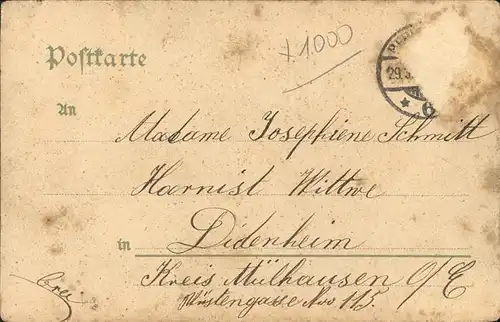 +1000
Postkarte
29.3.
An
Madame Josephiene Schmitt
Harnist Wittwe
in Didenheim
Kreis Mülhausen O/E
Wüstengasse Nro 115